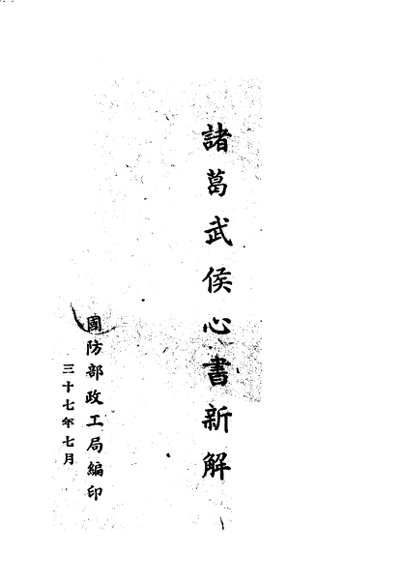 諸葛武侯心書新解
國防部政工局編印
三十七年七月